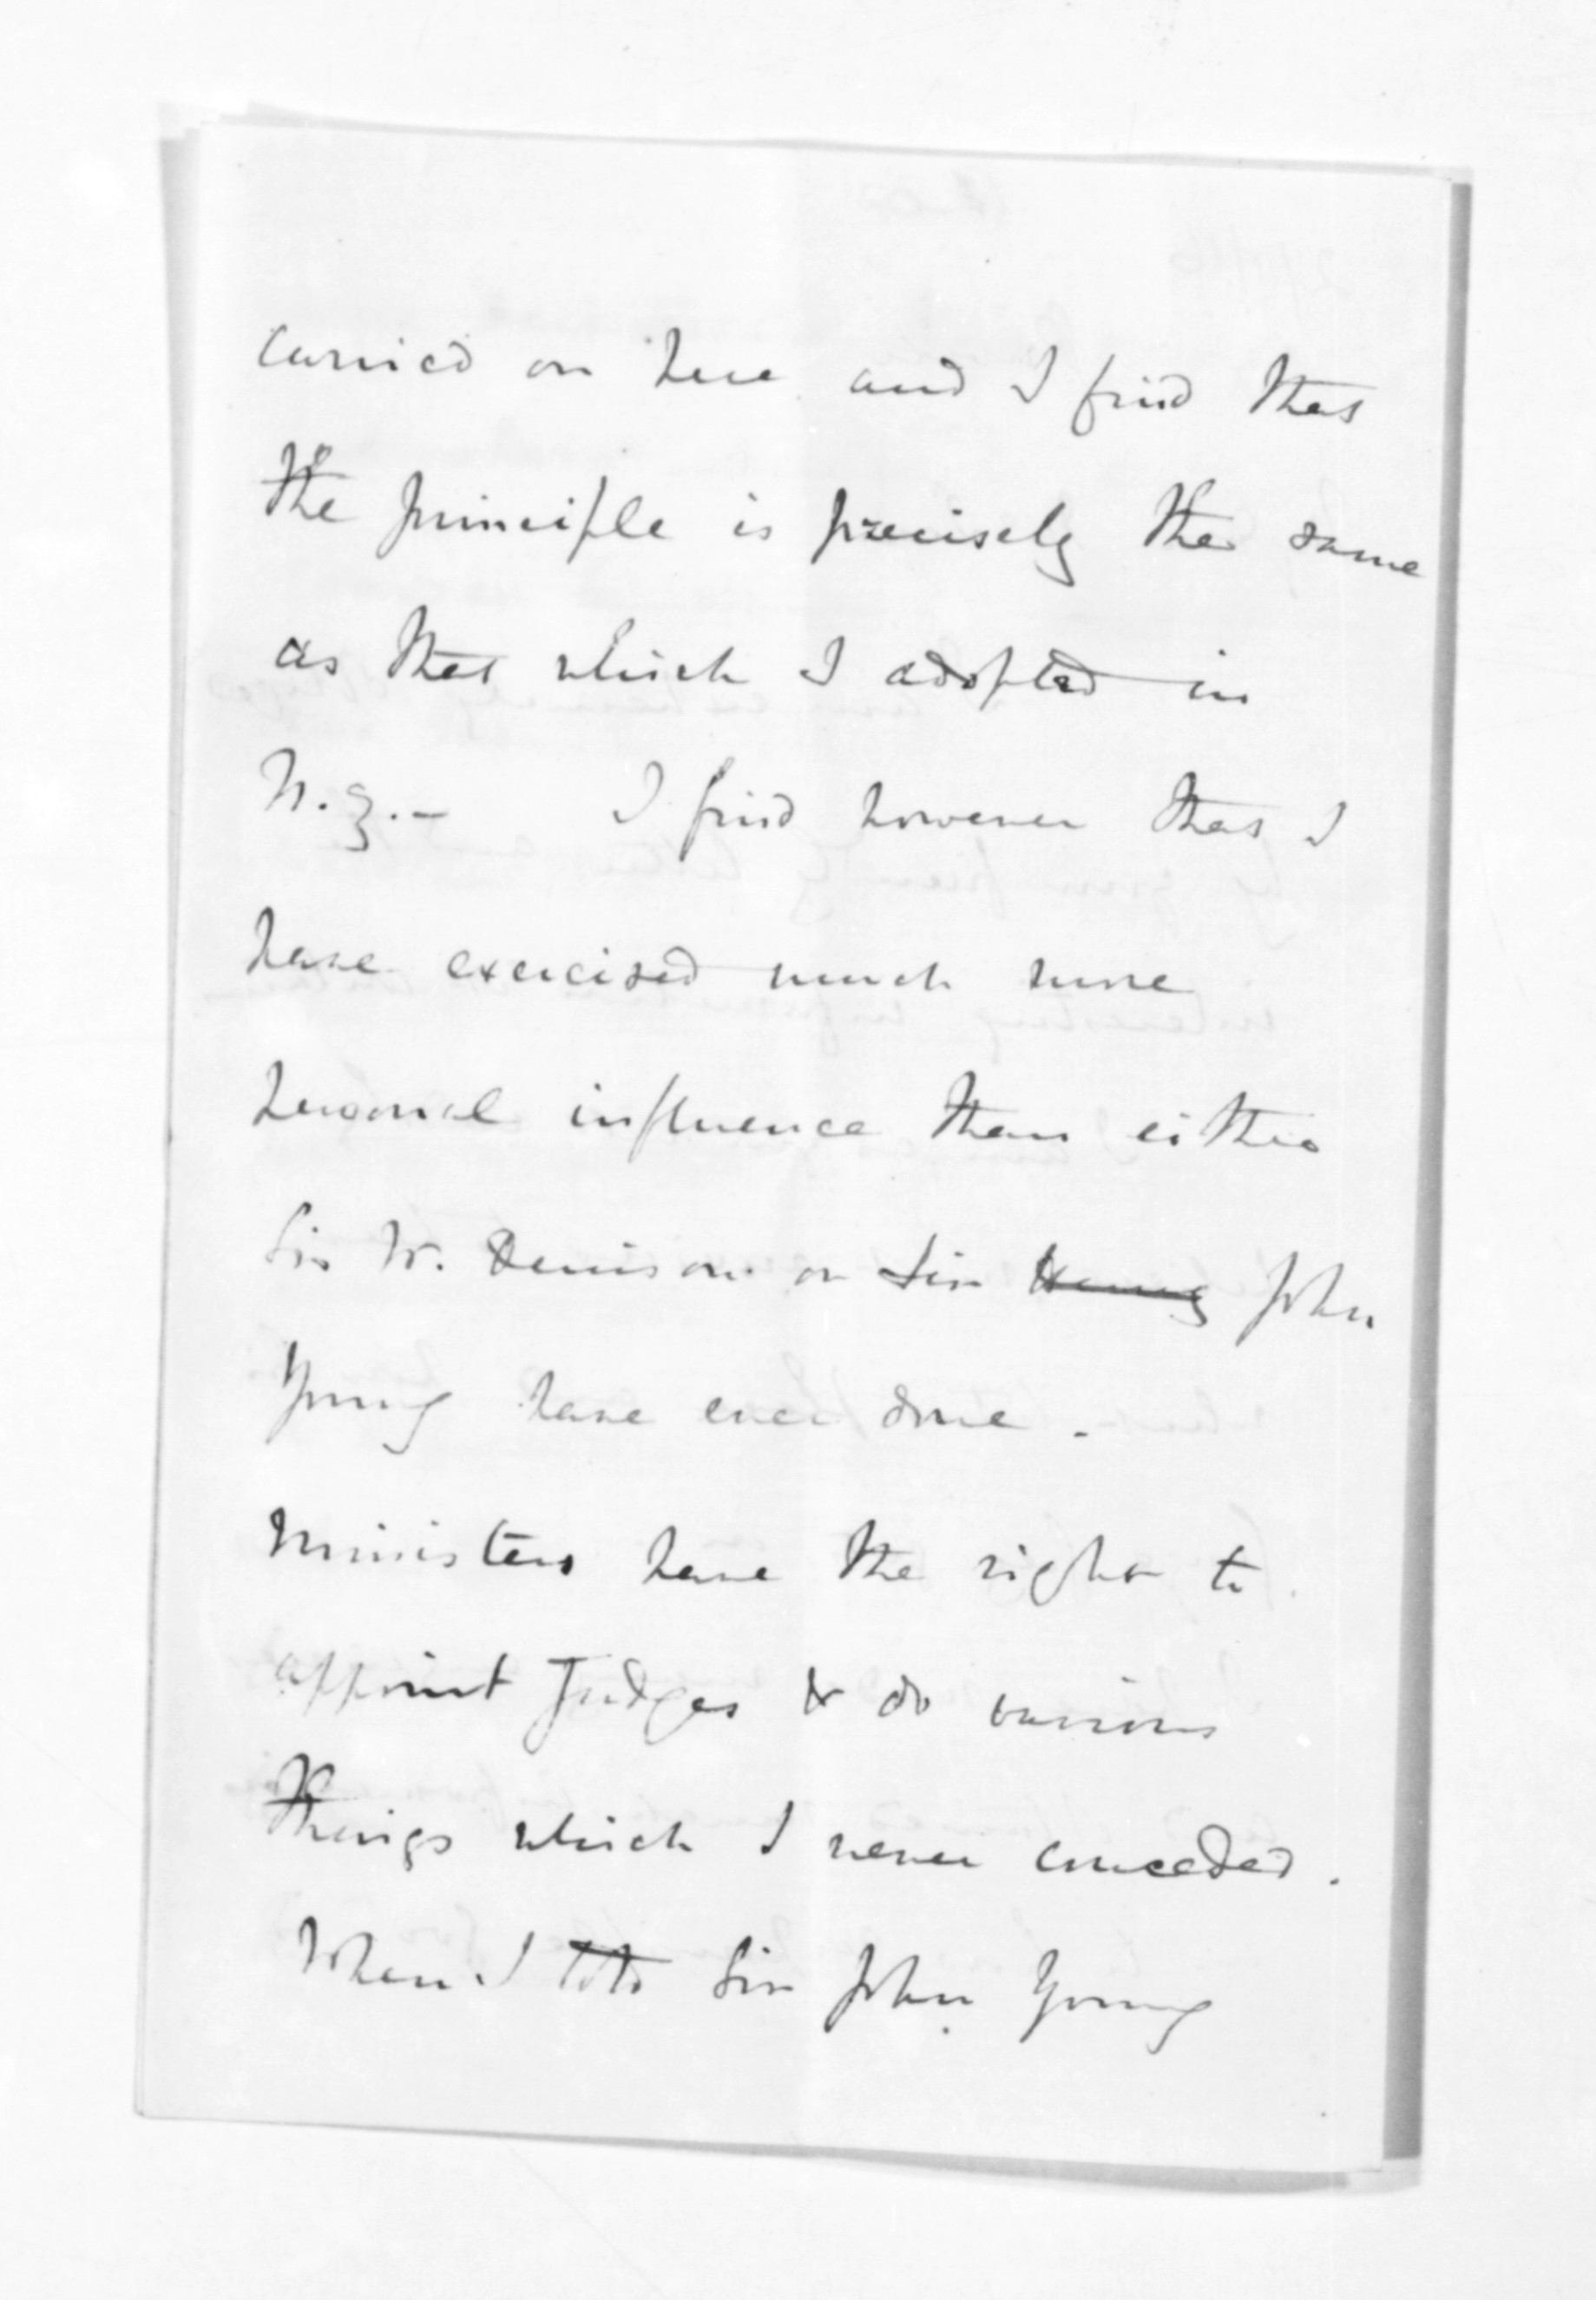 carried on here and I find that
the principle is precisely the same
as that which I adopted in
N.Z.- I find however that I
have exercised much more
personal influence than either
Sir W. Denison or Sir Henry John
Young have ever done.
Ministers have the right to
appoint Judges & do various
things which I never conceded.
When I told Sir John Young